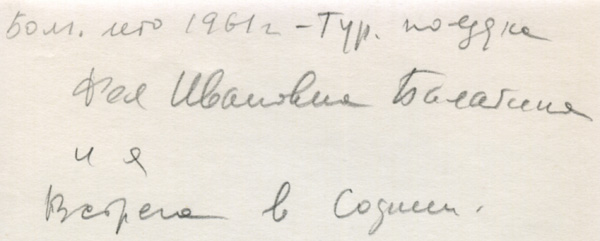 Бол. лето 1961 г – Тур. поездка
Ивановна Балабина
и я
Встреча в Софии.